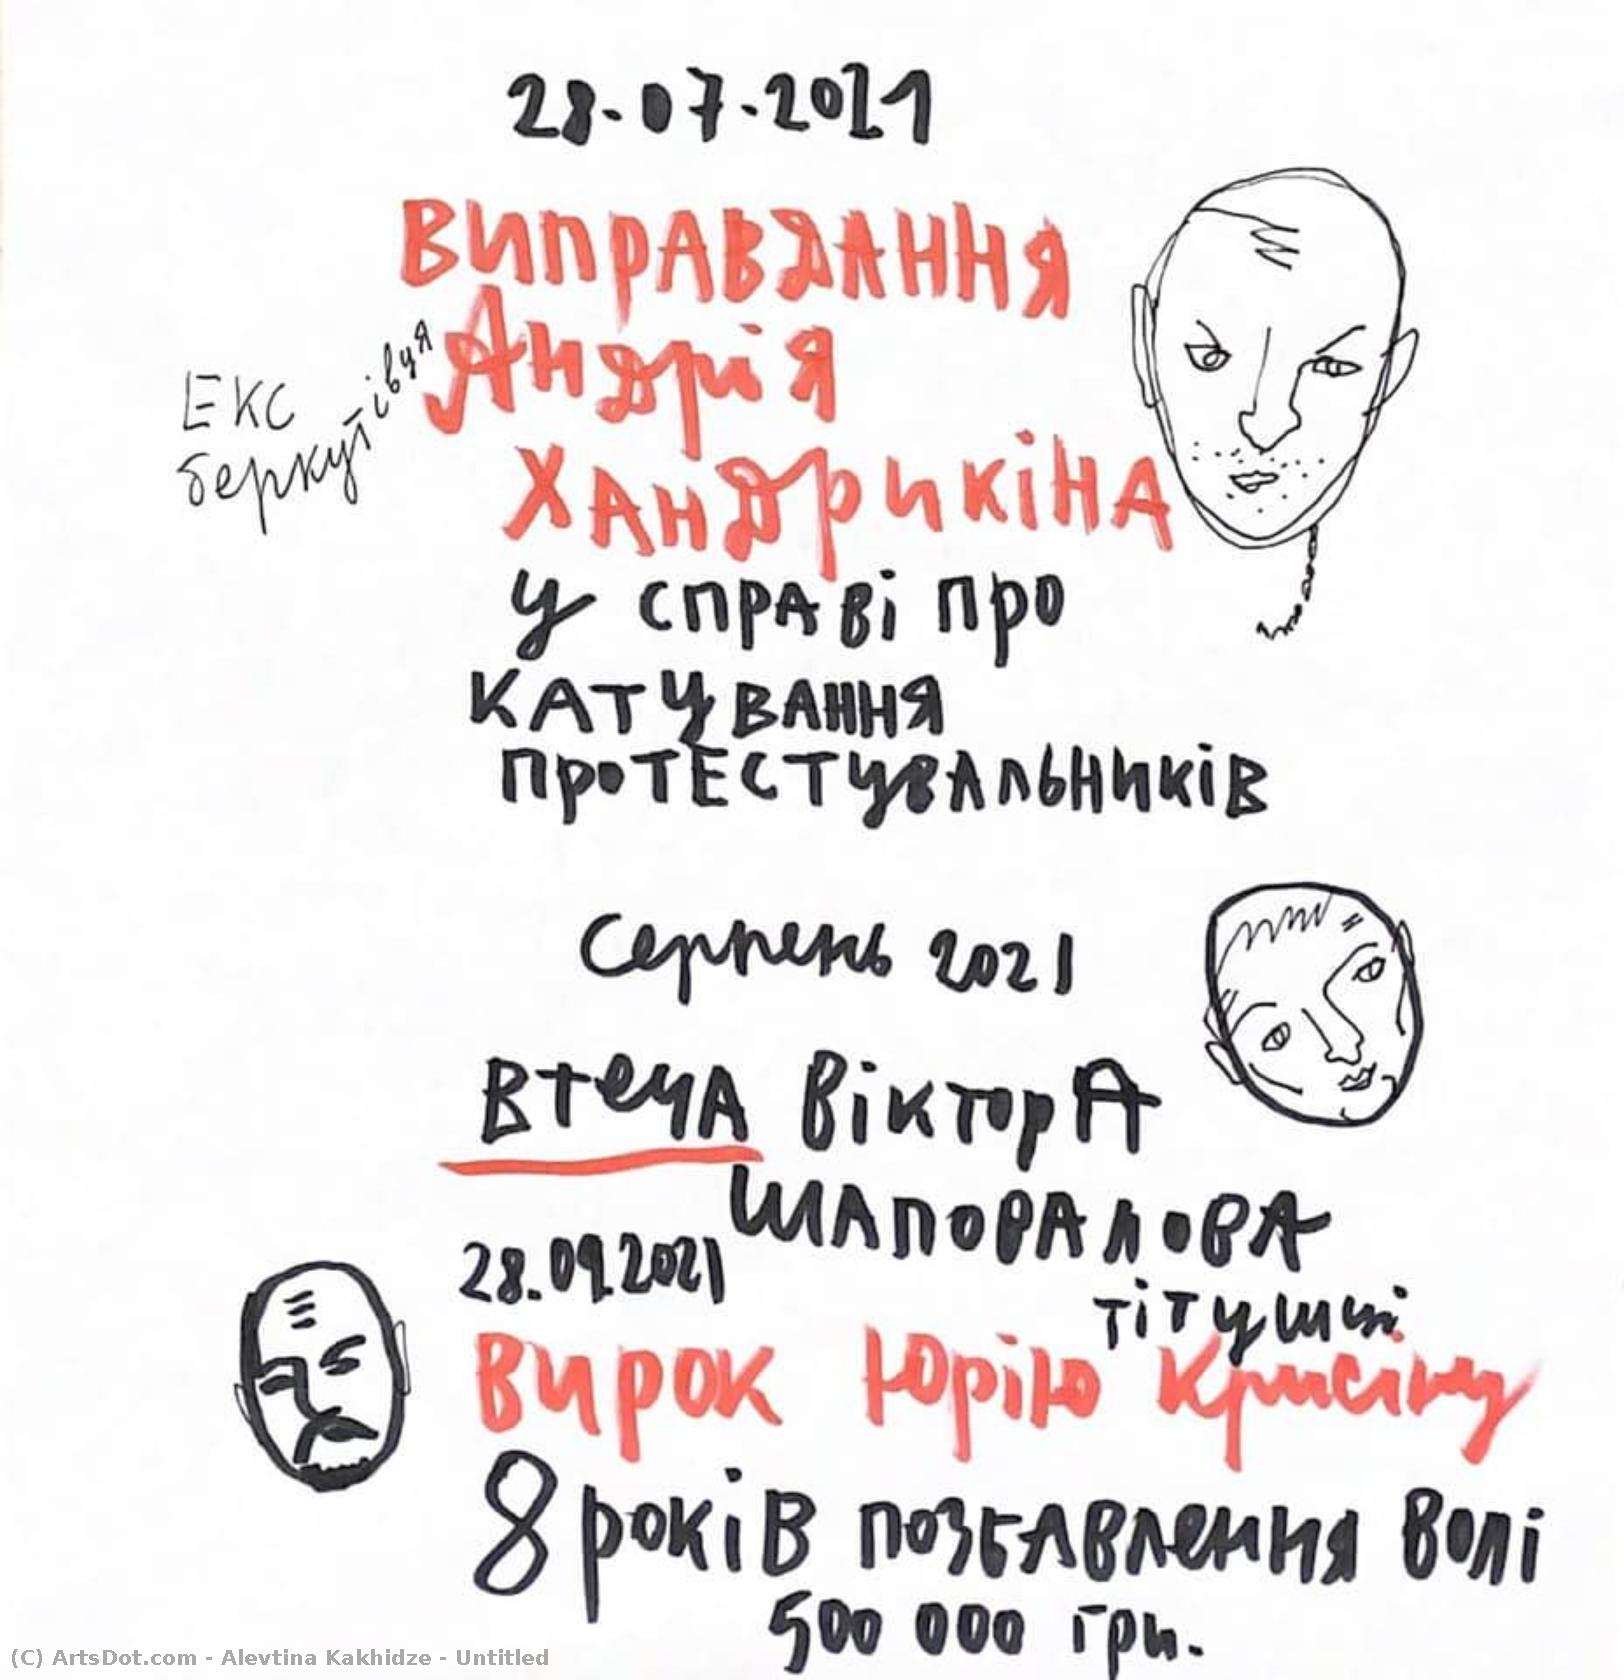 28.07.2021
ВИПРАВДАННЯ
Екс
беркутівця
Андрія
ХАНДРИКІНА
у справі про
КАТУВАННЯ
проТЕСТУВАЛЬНИКІВ
Серпень 2021
втечА ВікторА
ШАПОВАЛОВА
28.09.2021
тітушки
Вирок Юрію Крисіну
8 років позбавлення волі
500 000 грн.
(C) ArtsDot.com - Alevtina Kakhidze - Untitled